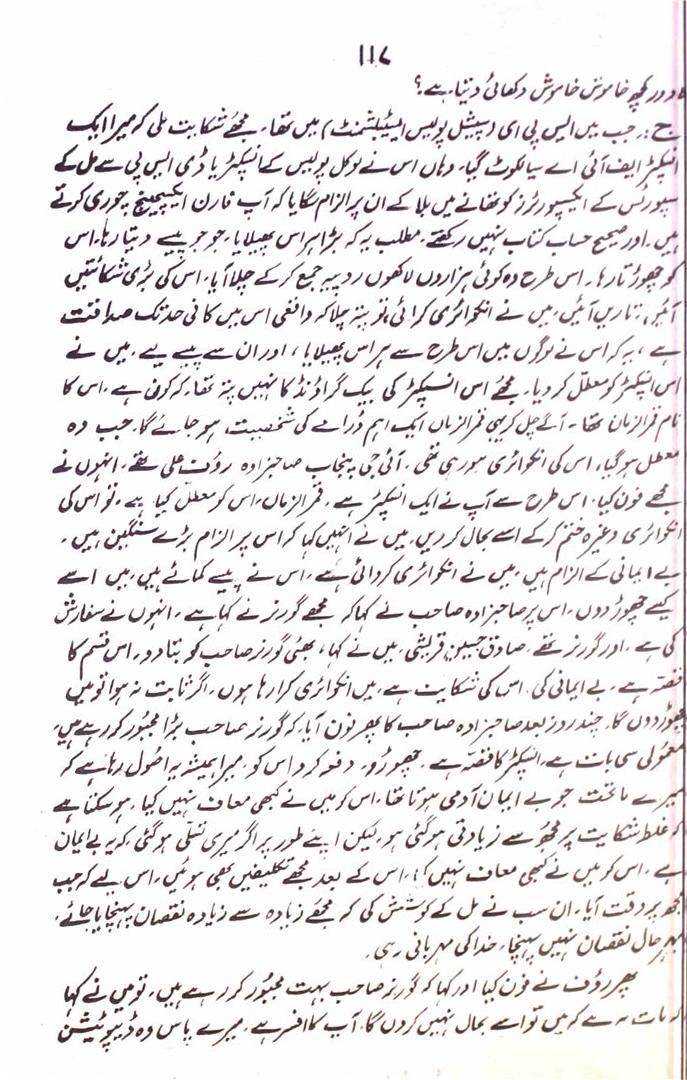 ۱۱۷
دور کچھ خاموش خاموش دکھائی دیتا ہے؟
ج :۔ جب میں ایس پی ای (سپیشل پولیس اسٹیبلشمنٹ) میں تھا۔ مجھے شکایت ملی کہ میرا ایک
انسپکٹر ایف آئی اے سیالکوٹ گیا۔ وہاں اس نے لوکل پولیس کے انسپکٹر یا ڈی ایس پی سے مل کے
سپورٹس کے ایکسپورٹرز کو تھانے میں بلا کے ان پر الزام لگایا کہ آپ فارن ایکسچینج چوری کرتے
ہیں۔ اور صحیح حساب کتاب نہیں رکھتے۔ مطلب یہ کہ بڑا ہراس پھیلایا۔ جو جو پیسے دیتا رہا۔ اس
کو چھوڑتا رہا۔ اس طرح وہ کوئی ہزاروں لاکھوں روپیہ جمع کر کے چلا آیا۔ اس کی بڑی شکائتیں
آئیں، تاریں آئیں، میں نے انکوائری کرائی، تو پتہ چلا کہ واقعی اس میں کافی حد تک صداقت
ہے، یہ کہ اس نے لوگوں میں اس طرح سے ہراس پھیلایا، اور ان سے پیسے لیے۔ میں نے
اس انسپکٹر کو معطل کر دیا۔ مجھے اس انسپکٹر کی بیک گراؤنڈ کا نہیں پتہ تھا، کہ کون ہے۔ اس کا
نام قمرالزمان تھا۔ آگے چل کر یہی قمرالزماں ایک اہم ڈرامے کی شخصیت ہو جائے گا۔ جب وہ
معطل ہو گیا، اس کی انکوائری ہو رہی تھی۔ آئی جی پنجاب صاحبزادہ رؤف علی تھے۔ انہوں نے
مجھے فون کیا۔ اس طرح سے آپ نے ایک انسپکٹر ہے۔ قمرالزماں، اس کو معطل کیا ہے۔ تو اس کی
انکوائری وغیرہ ختم کر کے اسے بحال کر دیں۔ میں نے انہیں کہا کہ اس پر الزام بڑے سنگین ہیں۔
بے ایمانی کے الزام ہیں، میں نے انکوائری کروائی ہے، اس نے پیسے کمائے ہیں، میں اسے
کیسے چھوڑ دوں۔ اس پر صاحبزادہ صاحب نے کہا کہ مجھے گورنر نے کہا ہے۔ انہوں نے سفارش
کی ہے۔ اور گورنر تھے۔ صادق حسین قریشی۔ میں نے کہا، بھئی گورنر صاحب کو بتا دو۔ اس قسم کا
قصہ ہے۔ بے ایمانی کی اس کی شکایت ہے۔ میں انکوائری کرا رہا ہوں۔ اگر ثابت نہ ہوا تو میں
چھوڑ دوں گا۔ چند روز بعد صاحبزادہ صاحب کا پھر فون آیا۔ کہ گورنر صاحب بڑا مجبور کر رہے ہیں۔
معمولی سی بات ہے، انسپکٹر کا قصہ ہے۔ چھوڑو۔ دفع کرو اس کو۔ میرا ہمیشہ یہ اصول رہا ہے کہ
میرے ماتحت جو بے ایمان آدمی ہوتا تھا۔ اس کو میں نے کبھی معاف نہیں کیا۔ ہو سکتا ہے
کہ غلط شکایت پر مجھ سے زیادتی ہو گئی ہو۔ لیکن اپنے طور پر اگر میری تسلی ہو گئی، کہ یہ بے ایمان
ہے۔ اس کو میں نے کبھی معاف نہیں کیا، اس کے بعد مجھے تکلیفیں بھی ہوئیں۔ اس لیے کہ جب
مجھ پر وقت آیا۔ ان سب نے مل کے کوشش کی کہ مجھے زیادہ سے زیادہ نقصان پہنچایا جائے۔
بہر حال نقصان نہیں پہنچا۔ خدا کی مہربانی رہی۔
پھر رؤف نے فون کیا اور کہا کہ گورنر صاحب بہت مجبور کر رہے ہیں۔ تو میں نے کہا
کہ بات یہ ہے کہ میں تو اسے بحال نہیں کروں گا۔ آپ کا افسر ہے۔ میرے پاس وہ ڈیپوٹیشن